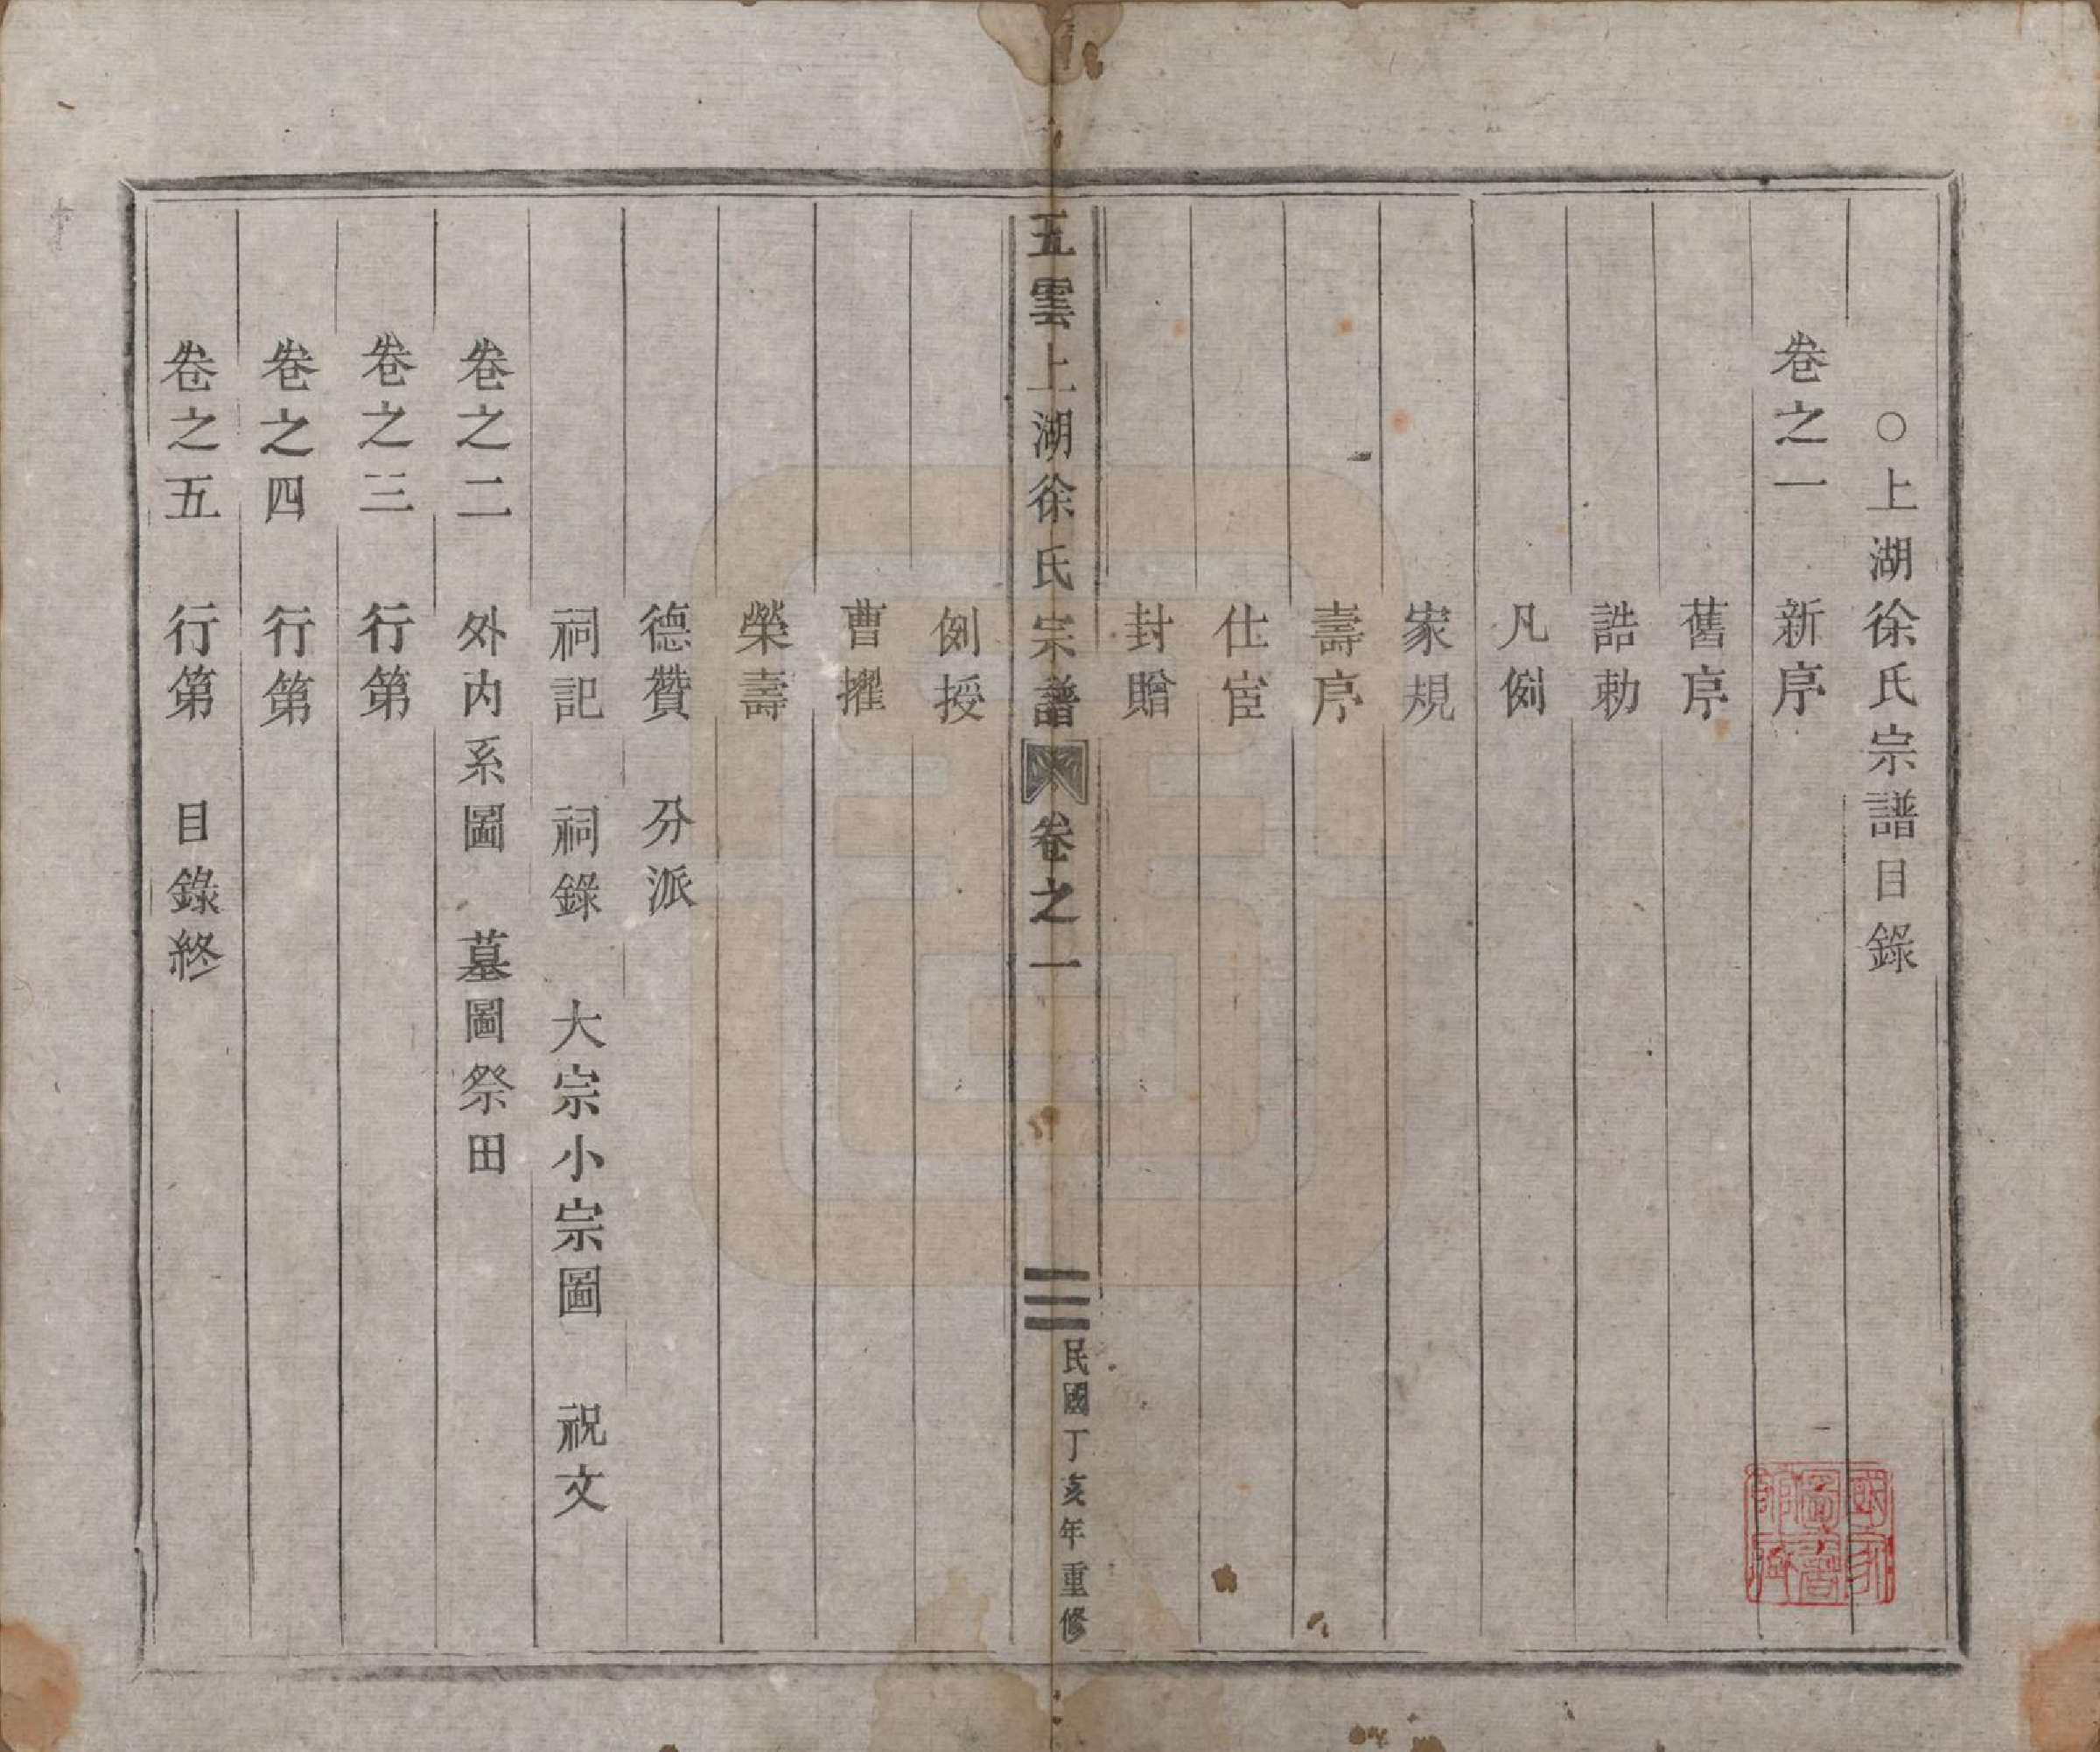 ○上湖徐氏宗譜目錄
卷之一 新序
舊序
誥勅
凡例
家規
壽序
仕宦
封贈
五雲上湖徐氏宗譜 卷之一 民國丁亥年重修
例授
曹擢
榮壽
德贊 分派
祠記 祠錄 大宗小宗圖 祝文
卷之二 外内系圖 墓圖祭田
卷之三 行第
卷之四 行第
卷之五 行第 目錄終
國家
圖書